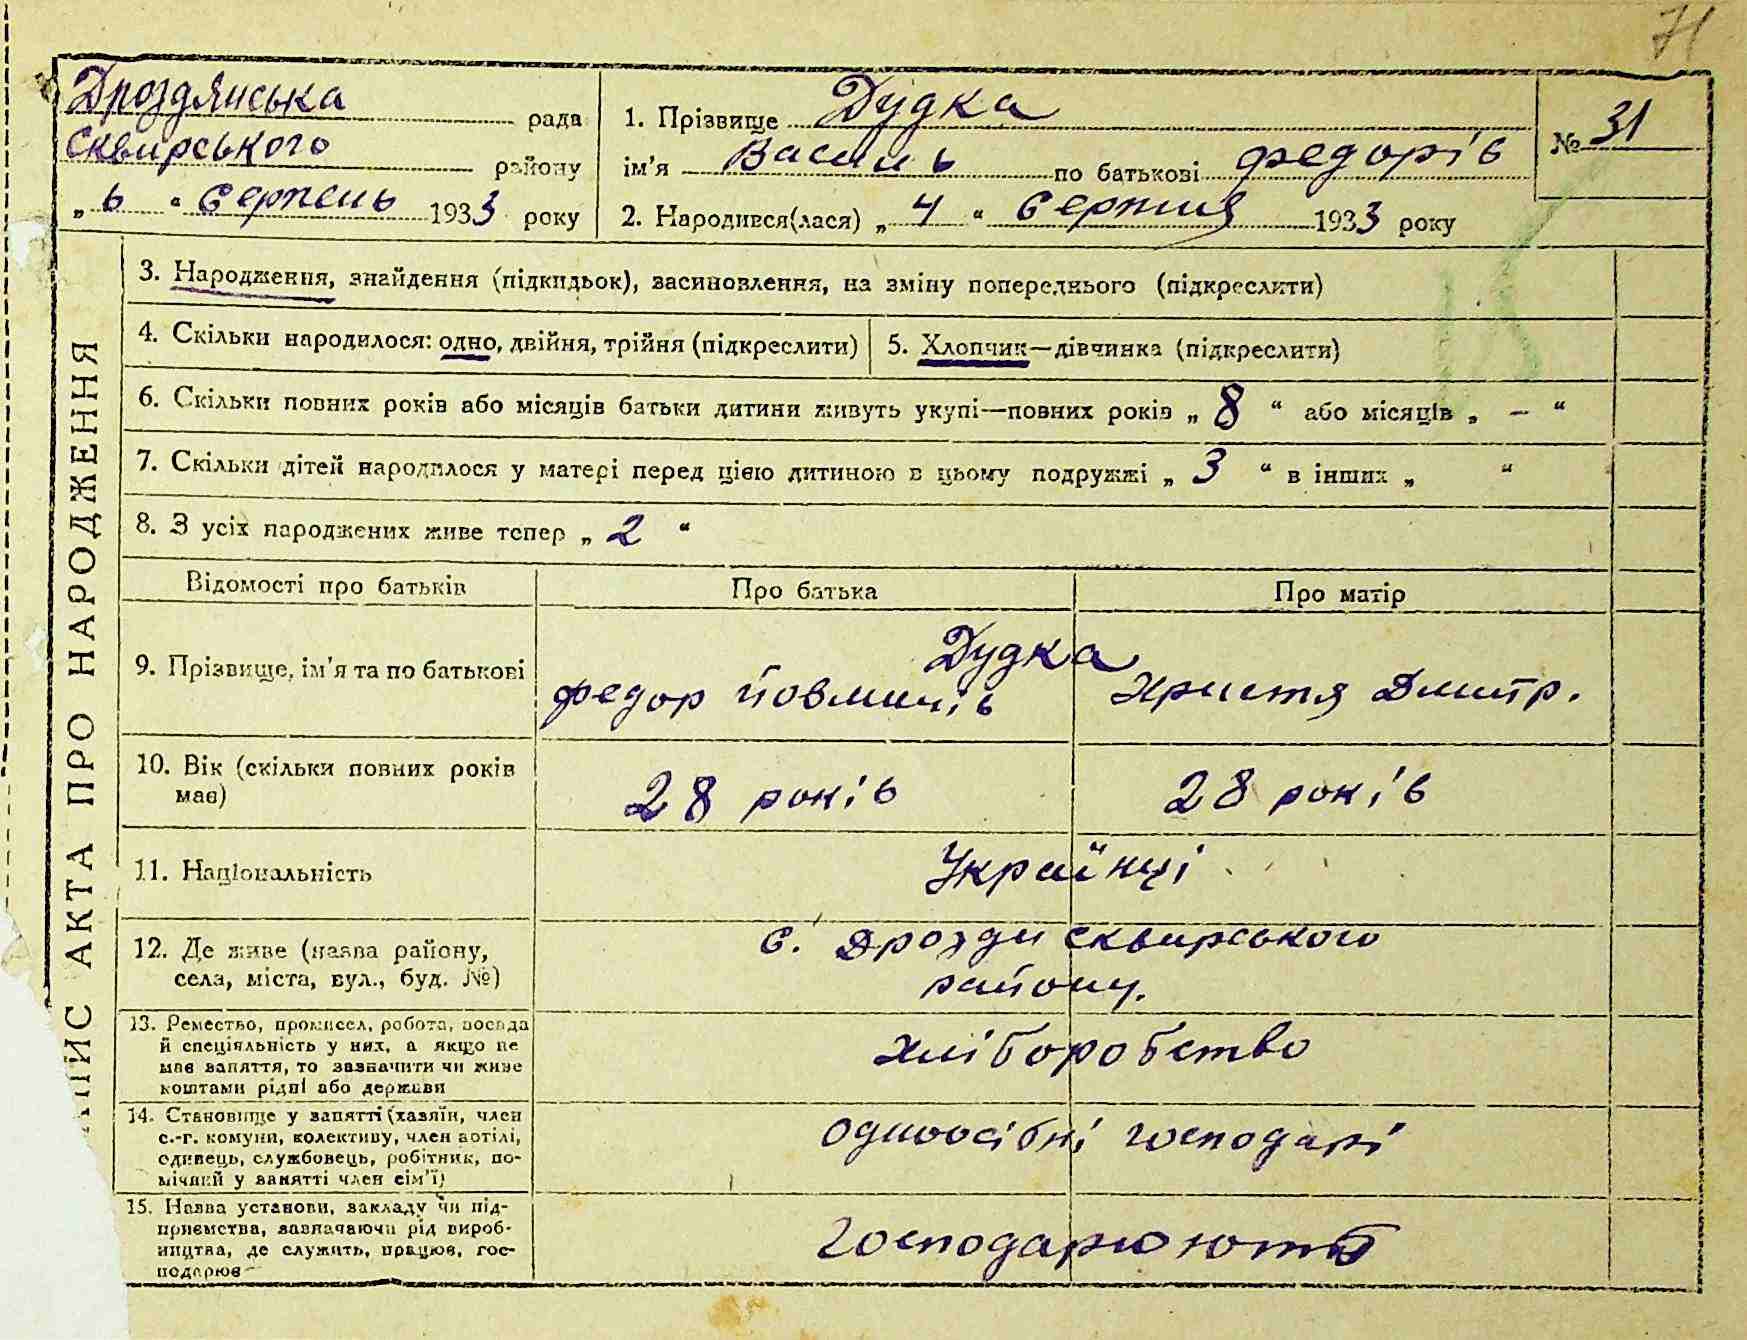 71
Дроздянська рада
Сквирського району
„ 6 “ Серпень 1933 року
1. Прізвище Дудка
ім’я Василь по батькові Федорів
2. Народився(лася) „ 4 “ Серпня 1933 року
№ 31
ПИС АКТА ПРО НАРОДЖЕННЯ
3. Народження, знайдення (підкидьок), засиновлення, на зміну попереднього (підкреслити)
4. Скільки народилося: одно, двійня, трійня (підкреслити)
5. Хлопчик—дівчинка (підкреслити)
6. Скільки повних років або місяців батьки дитини живуть укупі—повних років „ 8 “ або місяців „ – “
7. Скільки дітей народилося у матері перед цією дитиною в цьому подружжі „ 3 “ в інших „ “
8. З усіх народжених живе тепер „ 2 “
Відомості про батьків
Про батька
Про матір
9. Прізвище, ім’я та по батькові
Дудка
Федор
Христя Дмитр.
10. Вік (скільки повних років
має)
28 років
28 років
11. Національність
Українці
12. Де живе (назва району,
села, міста, вул., буд. №)
с. Дрозди Сквирського
району.
13. Ремество, промисел, робота, посада
й спеціяльність у них, а якщо не
має заняття, то зазначити чи живе
коштами рідні або держави
хліборобство
14. Становище у занятті (хазяїн, член
с.-г. комуни, колективу, член артілі,
одинець, службовець, робітник, по-
мічний у занятті член сім’ї)
одноосібні господарі
15. Назва установи, закладу чи під-
приємства, зазначаючи рід вироб-
ництва, де служить, працює, гос-
подарює
Господарюють